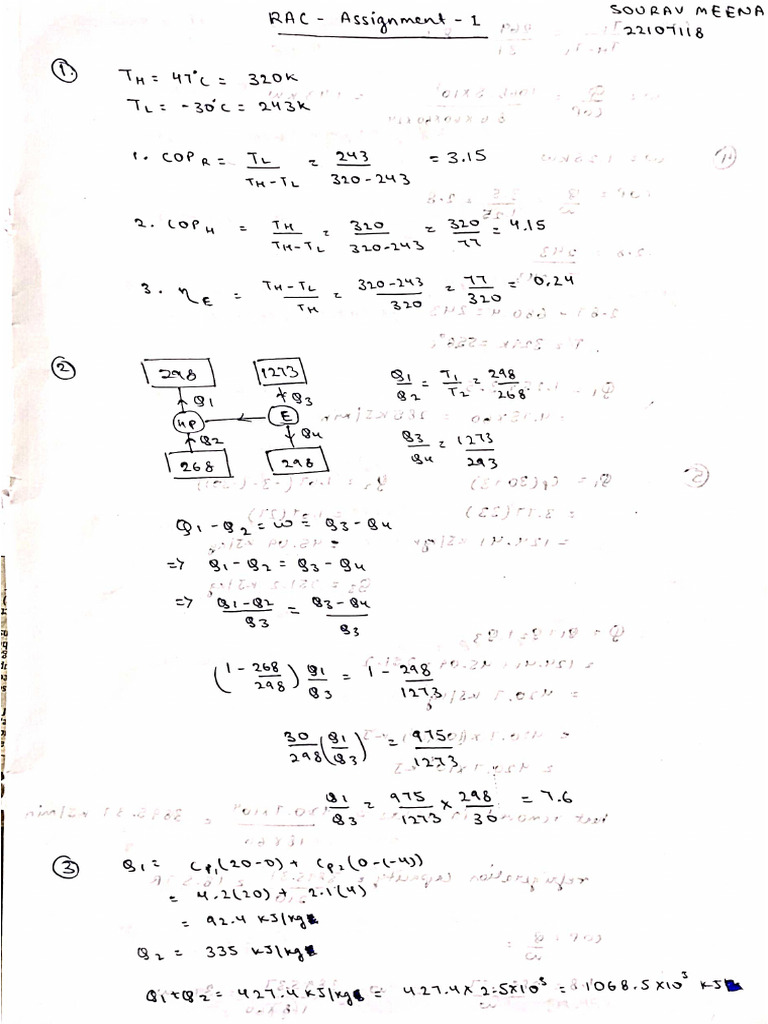 RAC - Assignment - 1
SOURAV MEENA
22107118
1.
TH = 47°C = 320K
TL = -30°C = 243K
1. COP R = TL / TH-TL = 243 / 320-243 = 3.15
2. COP H = TH / TH-TL = 320 / 320-243 = 320 / 77 = 4.15
3. ηE = TH-TL / TH = 320-243 / 320 = 77 / 320 = 0.24
2
298 1273
Q1 Q3
HP E
Q2 Q4
268 298
Q1/Q2 = T1/T2 = 298/268
Q3/Q4 = 1273/293
Q1 - Q2 = W = Q3 - Q4
=> Q1 - Q2 = Q3 - Q4
=> Q1-Q2 / Q3 = Q3-Q4 / Q3
(1 - 268/298) Q1/Q3 = 1 - 298/1273
30/298 (Q1/Q3) = 975/1273
Q1/Q3 = 975/1273 × 298/30 = 7.6
3
Q1 = Cp1(20-0) + Cp2(0-(-4))
= 4.2(20) + 2.1(4)
= 92.4 KJ/kg
Q2 = 335 KJ/kg
Q1+Q2 = 427.4 KJ/kg = 427.4 × 2.5×10³ = 1068.5 ×10³ KJ